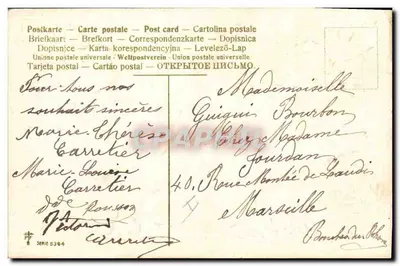 Postkarte - Carte postale - Post card - Cartolina postale
Briefkaart - Brefkort - Correspondenzkarte - Dopisnica
Dopisnice - Karta korespondencyjna - Levelező-Lap
Unione postale universale - Weltpostverein - Union postale universelle
Tarjeta postal - Cartão postal - ОТКРЫТОЕ ПИСЬМО.
Pour tous nos
souhaits sincères
Marie Thérèse
Carretier
Marie Louise
Carretier
Mademoiselle
Guigui Bourbon
Chez Madame
Jourdan
40. Rue Montée de Lodi
Marseille
Bouches du Rhône